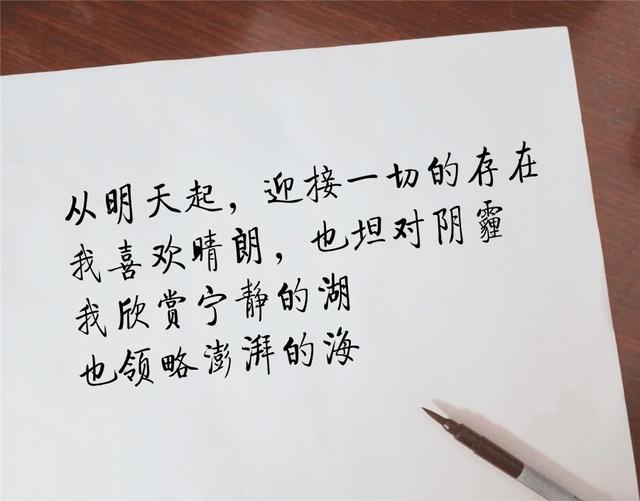 从明天起，迎接一切的存在
我喜欢晴朗，也坦对阴霾
我欣赏宁静的湖
也领略澎湃的海